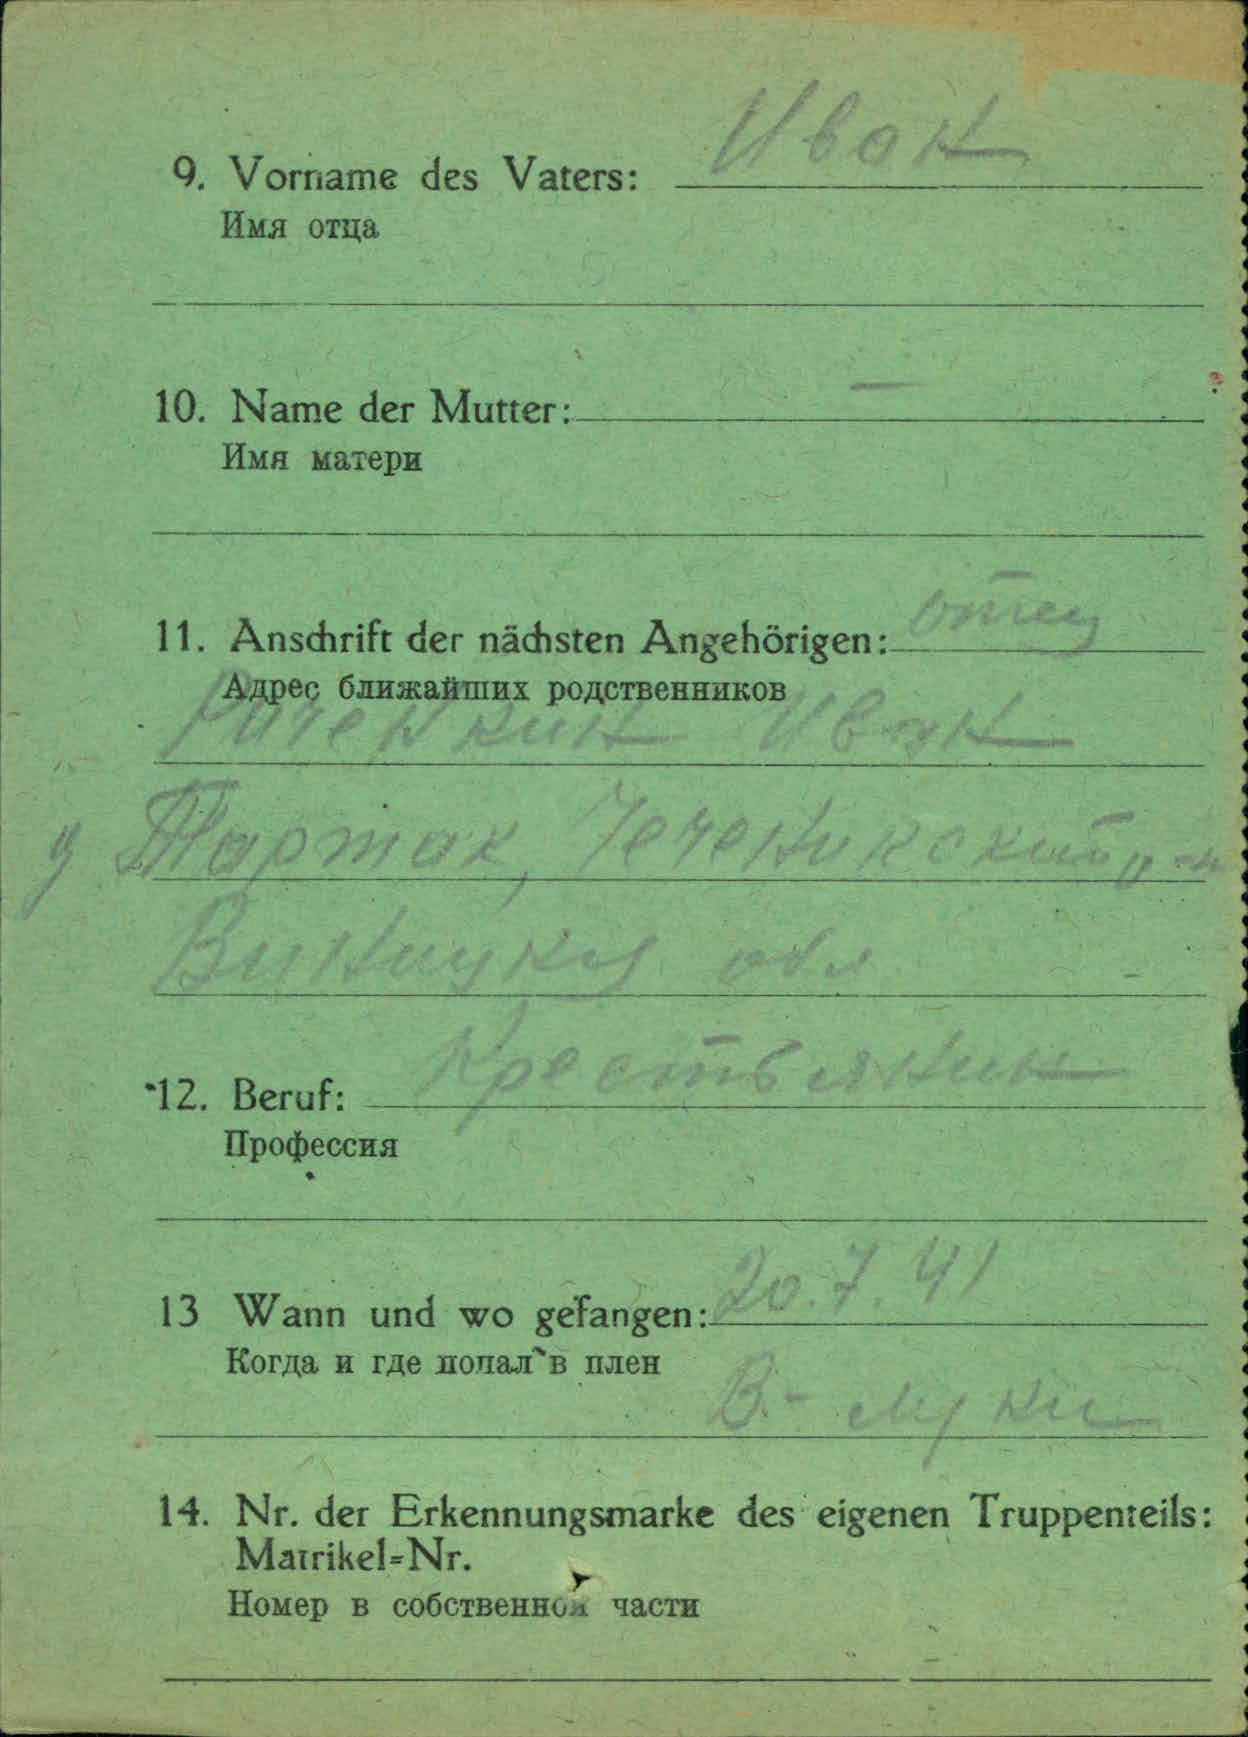 9. Vorname des Vaters: Иван
Имя отца
10. Name der Mutter: —
Имя матери
11. Anschrift der nächsten Angehörigen: отец
Адрес ближайших родственников
Иван
Тартак, Чечен
обл
12. Beruf: Крестьянин
Профессия
13 Wann und wo gefangen: 20.7.41
Когда и где попал в плен
В.- луки
14. Nr. der Erkennungsmarke des eigenen Truppenteils:
Matrikel=Nr.
Номер в собственной части